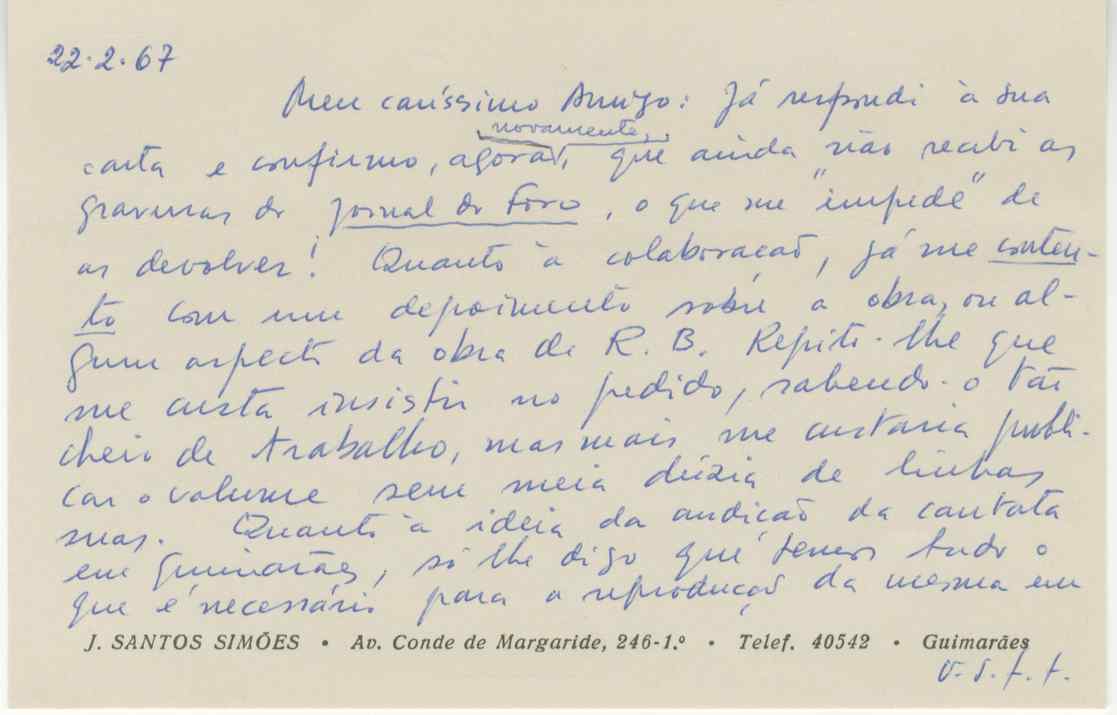 22.2.67
Meu caríssimo Amigo: Já respondi à sua
novamente,
carta e confirmo, agora, que ainda não recebi as
gravuras do Jornal do Foro, o que me "impede" de
as devolver! Quanto à colaboração, já me conten-
to com um depoimento sobre a obra, ou al-
gum aspecto da obra de R. B. Repito-lhe que
me custa insistir no pedido, sabendo-o tão
cheio de trabalho, mas mais me custaria publi-
car o volume sem meia dúzia de linhas
suas. Quanto à ideia da audição da cantata
em Guimarães, só lhe digo que temos tudo o
que é necessário para a reprodução da mesma em
J. SANTOS SIMÕES • Av. Conde de Margaride, 246-1.º • Telef. 40542 • Guimarães
V.S.f.f.